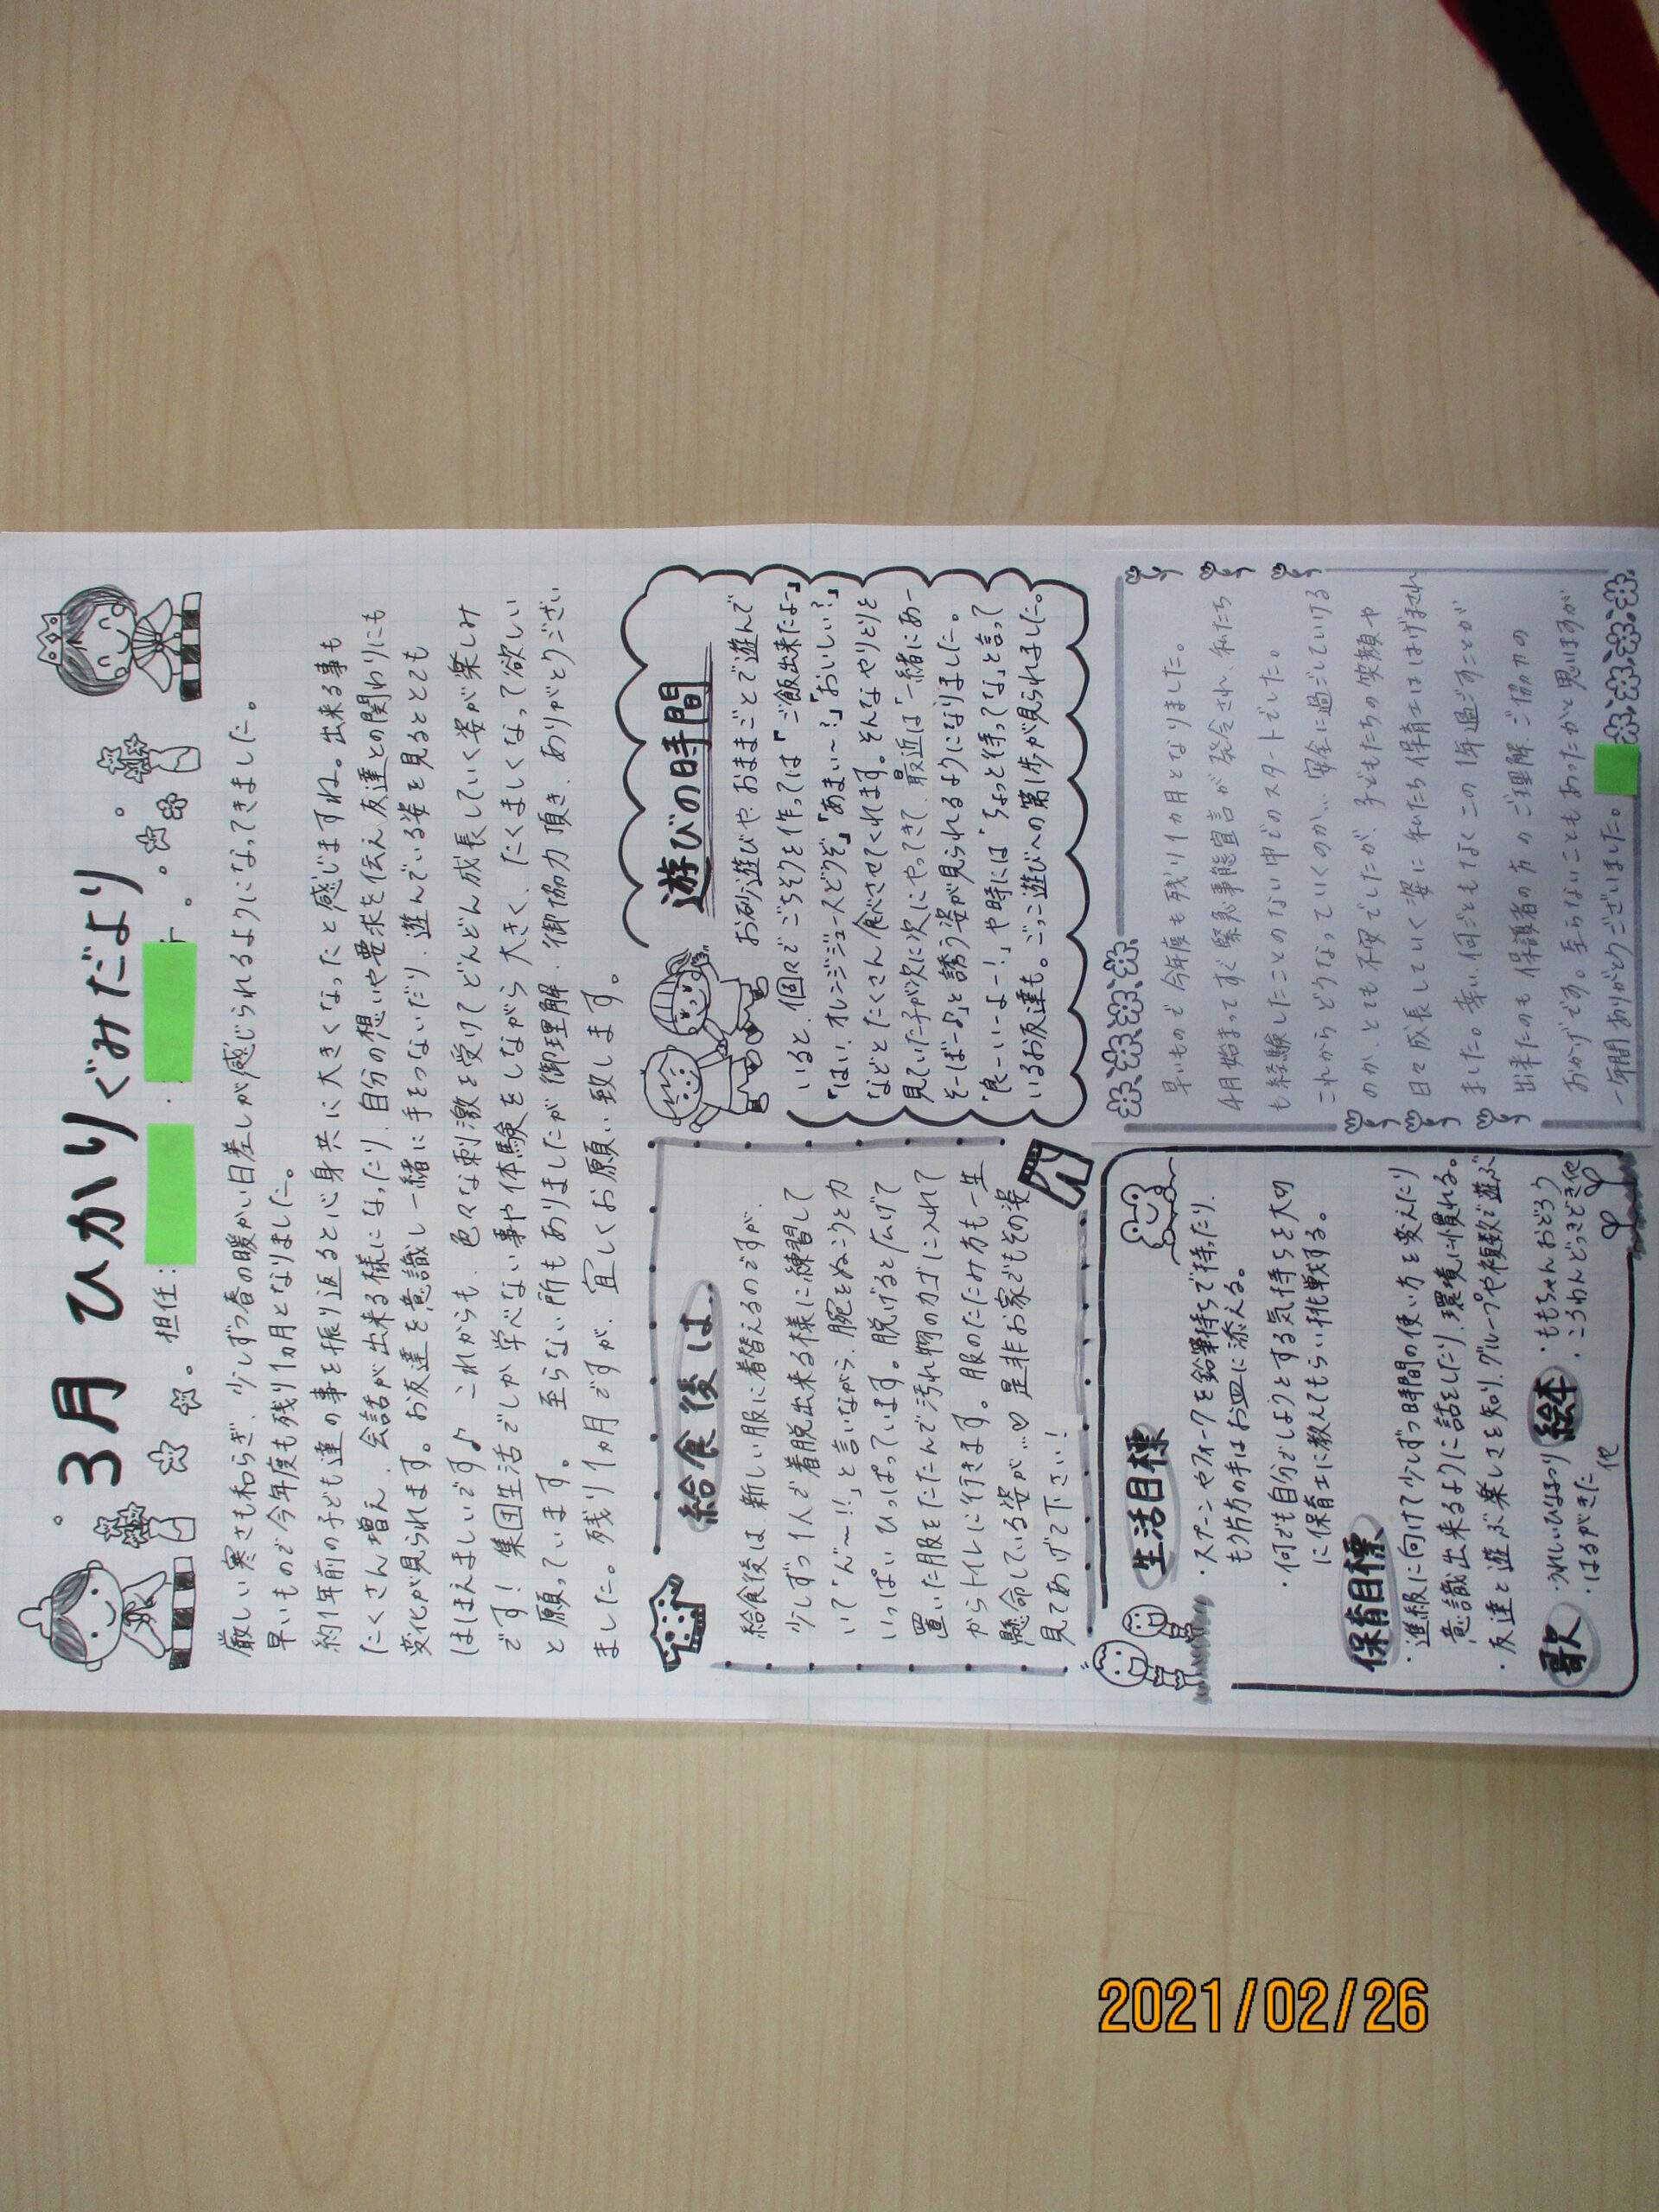 3月 ひかりぐみだより
担任:
厳しい寒さも和らぎ、少しずつ春の暖かい日差しが感じられるようになってきました。
早いもので今年度も残り1ヵ月となりました。
約1年前の子ども達の事を振り返ると心身共に大きくなったと感じますね。出来る事も
たくさん増え、会話が出来る様になったり、自分の想いや要求を伝え友達との関わりにも
変化が見られます。お友達を意識し一緒に手をつないだり、遊んでいる姿を見るととても
ほほえましいです♪ これからも、色々な刺激を受けてどんどん成長していく姿が楽しみ
です！集団生活でしか学べない事や体験をしながら大きく、たくましくなって欲しい
と願っています。 至らない所もありましたが御理解、御協力頂き、ありがとうござい
ました。残り1ヵ月ですが、宜しくお願い致します。
給食後は‥
給食後は新しい服に着替えるのですが、
少しずつ1人で着脱出来る様に練習して
いて「ん゛～!!」と言いながら、腕をぬこうと力
いっぱいひっぱっています。脱げると広げて
置いた服をたたんで汚れ物のカゴに入れて
からトイレに行きます。服のたたみ方も一生
懸命している姿が…♡ 是非お家でもその姿
見てあげて下さい！
遊びの時間
お砂遊びや、おままごとで遊んで
いると、個々でごちそうを作っては「ご飯出来たよー」
「はい、オレンジジュースどうぞ」「あまい～?」「おいしい?」
などとたくさん食べさせてくれます。そんなやりとりを
見ていた子が次に次にやってきて、最近は「一緒にあー
そーぼー♪」と誘う姿が見られるようになりました。
「良ーいーよー!」や時には「ちょっと待ってな」と言って
いるお友達も。ごっこ遊びへの第1歩が見られました。
生活目標
・スプーンやフォークを鉛筆持ちで持ったり、
もう片方の手はお皿に添える。
・何でも自分でしようとする気持ちを大切
に保育士に教えてもらい挑戦する。
保育目標
・進級に向けて少しずつ時間の使い方を変えたり
意識出来るように話をしたり、環境に慣れる。
・友達と遊ぶ楽しさを知り、グループや複数で遊ぶ
歌 ・うれしいひなまつり
・はるがきた 他
絵本 ・ももちゃんおどろう
・ころわんどっきどき他
早いもので今年度も残り1ヵ月となりました。
4月始まってすぐ緊急事態宣言が発令され、私たち
も経験したことのない中でのスタートでした。
これからどうなっていくのか…安全に過ごしていける
のか、とても不安でしたが、子どもたちの笑顔や
日々成長していく姿に私たち保育士ははげまされ
ました。幸い、何ごともなくこの1年過ごすことが
出来たのも保護者の方のご理解、ご協力の
おかげです。至らないこともあったかと思いますが
一年間ありがとうございました。
2021/02/26